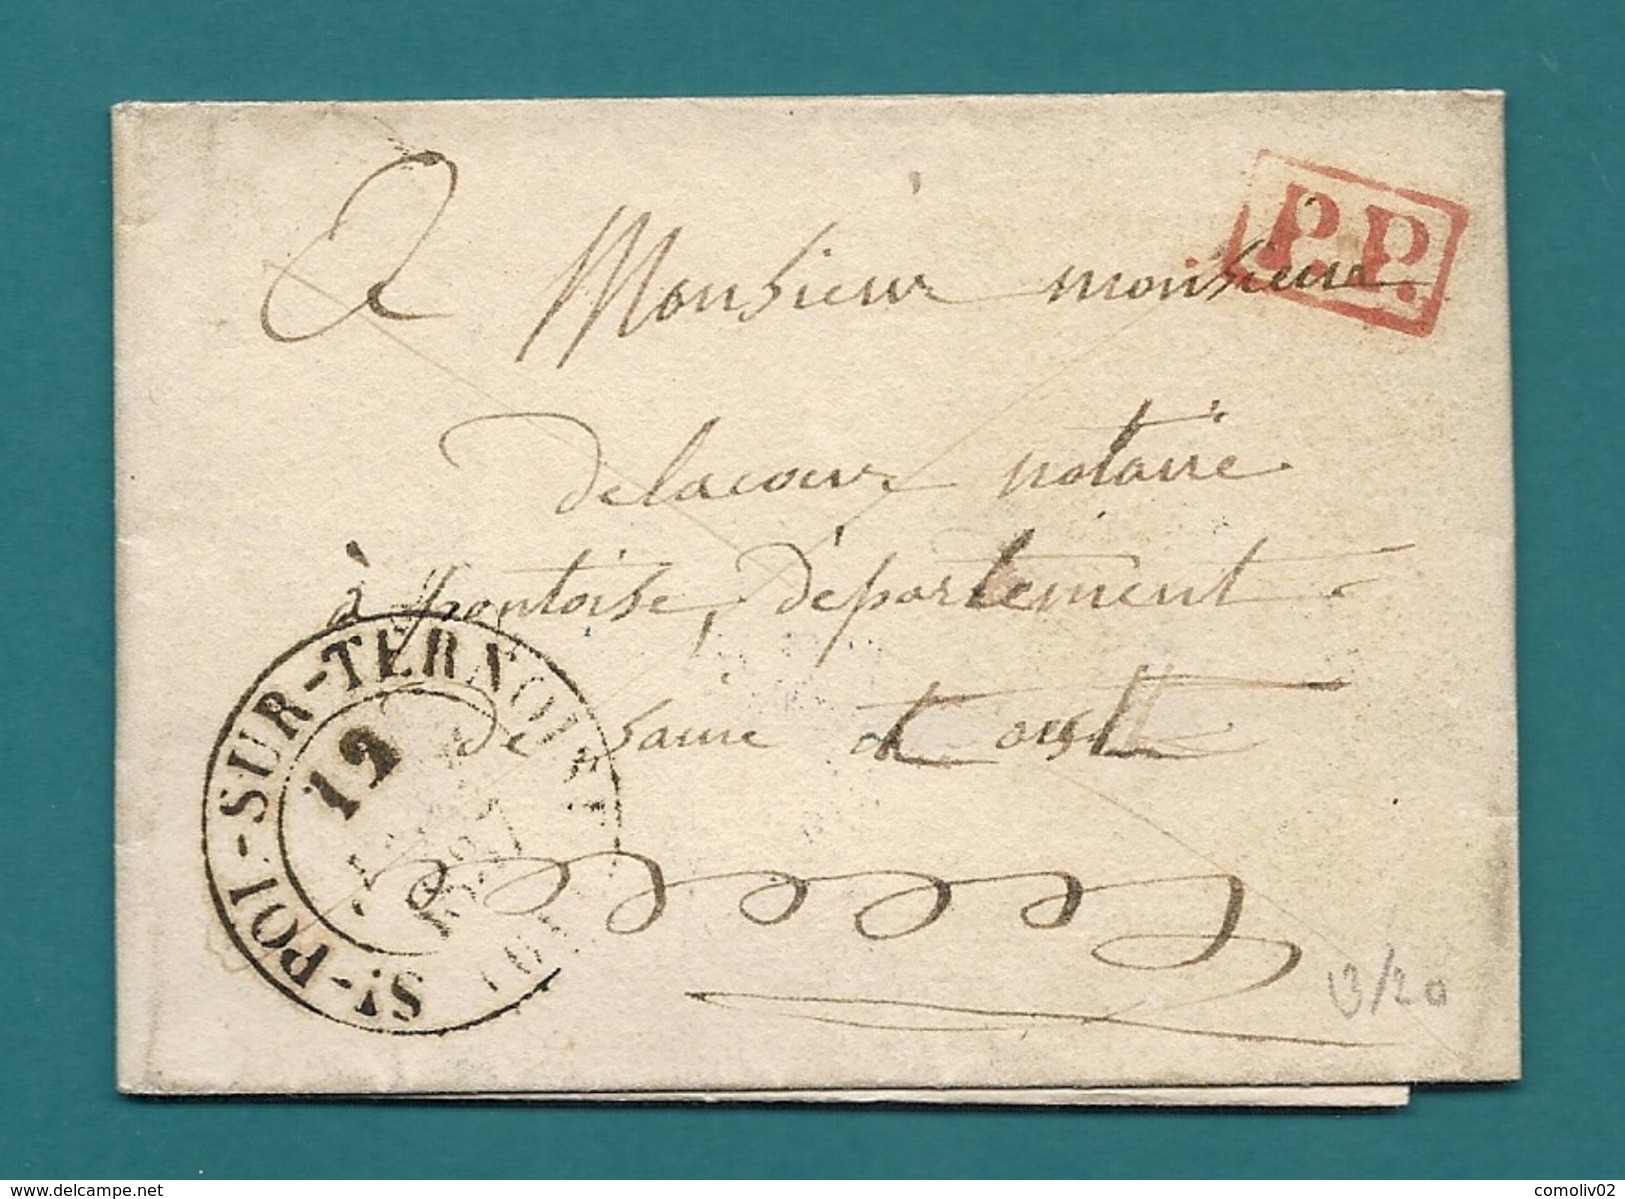 P.P.
A Monsieur monsieur
delacour notaire
à pontoise, département
de saine et oise
ST-POL-SUR-TERNOISE
12
13/20
www.delcampe.net
comoliv02